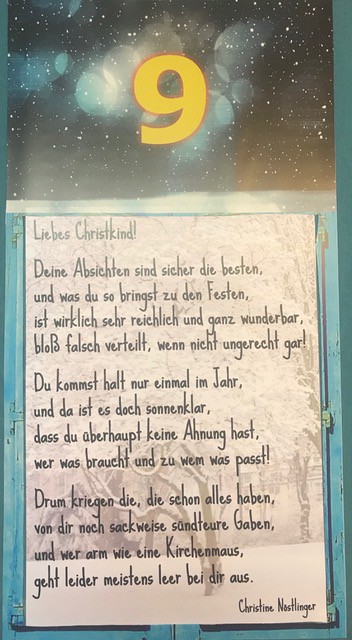 9
Liebes Christkind!
Deine Absichten sind sicher die besten,
und was du so bringst zu den Festen,
ist wirklich sehr reichlich und ganz wunderbar,
bloß falsch verteilt, wenn nicht ungerecht gar!
Du kommst halt nur einmal im Jahr,
und da ist es doch sonnenklar,
dass du überhaupt keine Ahnung hast,
wer was braucht und zu wem was passt!
Drum kriegen die, die schon alles haben,
von dir noch sackweise sündteure Gaben,
und wer arm wie eine Kirchenmaus,
geht leider meistens leer bei dir aus.
Christine Nöstlinger